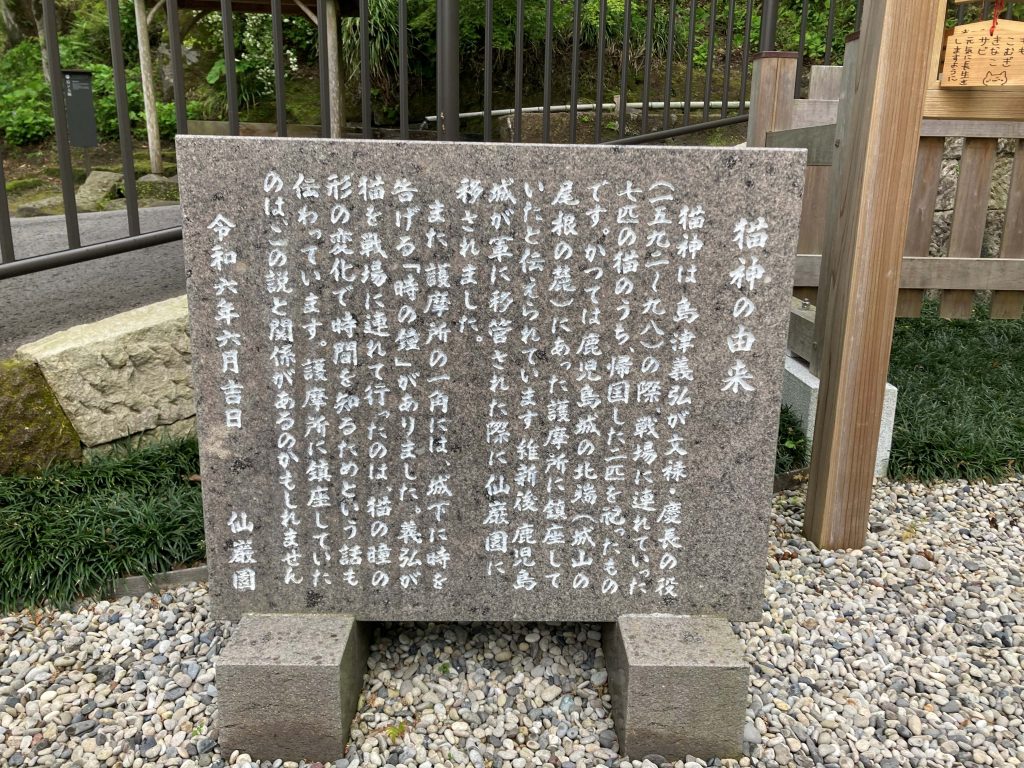 猫神の由来
猫神は、島津義弘が文禄・慶長の役
（一五九二〜九八）の際、戦場に連れていった
七匹の猫のうち、帰国した二匹を祀ったもの
です。かつては鹿児島城の北端（城山の
尾根の麓）にあった護摩所に鎮座して
いたと伝えられています。維新後、鹿児島
城が軍に移管された際に仙巌園に
移されました。
また、護摩所の一角には、城下に時を
告げる「時の鐘」がありました。義弘が
猫を戦場に連れて行ったのは、猫の瞳の
形の変化で時間を知るためという話も
伝わっています。護摩所に鎮座していた
のは、この説と関係があるのかもしれません
令和六年六月吉日
仙巌園
も
こむぎ
きなこ
サビ
元気に長生き
しますように